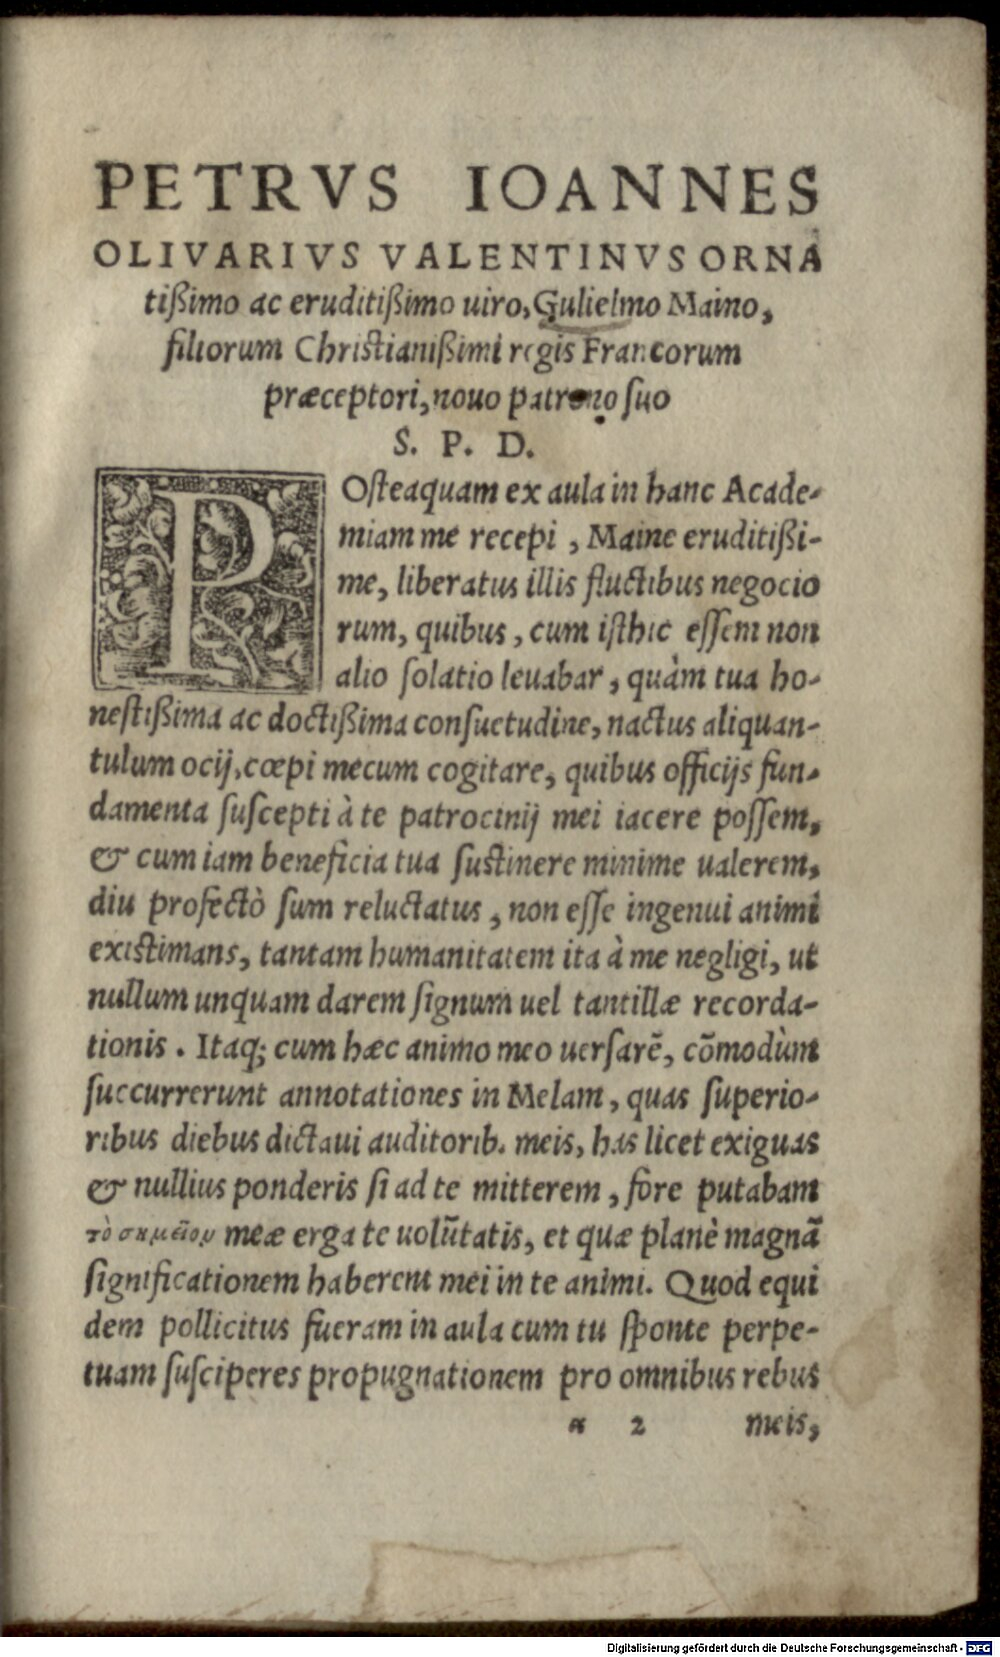 PETRVS IOANNES
OLIVARIVS VALENTINVS ORNA
tißimo ac eruditißimo uiro, Gulielmo Maino,
filiorum Christianißimi regis Francorum
præceptori, nouo patrono suo
S. P. D.
POsteaquam ex aula in hanc Acade-
miam me recepi, Maine eruditißi-
me, liberatus illis fluctibus negocio
rum, quibus, cum isthic essem non
alio solatio leuabar, quàm tua ho-
nestißima ac doctißima consuetudine, nactus aliquan-
tulum ocij, cœpi mecum cogitare, quibus officijs fun-
damenta suscepti à te patrocinij mei iacere possem,
& cum iam beneficia tua sustinere minime ualerem,
diu profectò sum reluctatus, non esse ingenui animi
existimans, tantam humanitatem ita à me negligi, ut
nullum unquam darem signum uel tantillæ recorda-
tionis. Itaq; cum hæc animo meo uersarē, cōmodùm
succurrerunt annotationes in Melam, quas superio-
ribus diebus dictaui auditorib. meis, has licet exiguas
& nullius ponderis si ad te mitterem, fore putabam
τὸ σημεῖον meæ erga te uolūtatis, et quæ planè magnā
significationem haberent mei in te animi. Quod equi
dem pollicitus fueram in aula cum tu sponte perpe-
tuam susciperes propugnationem pro omnibus rebus
α 2 meis,
Digitalisierung gefördert durch die Deutsche Forschungsgemeinschaft - DFG